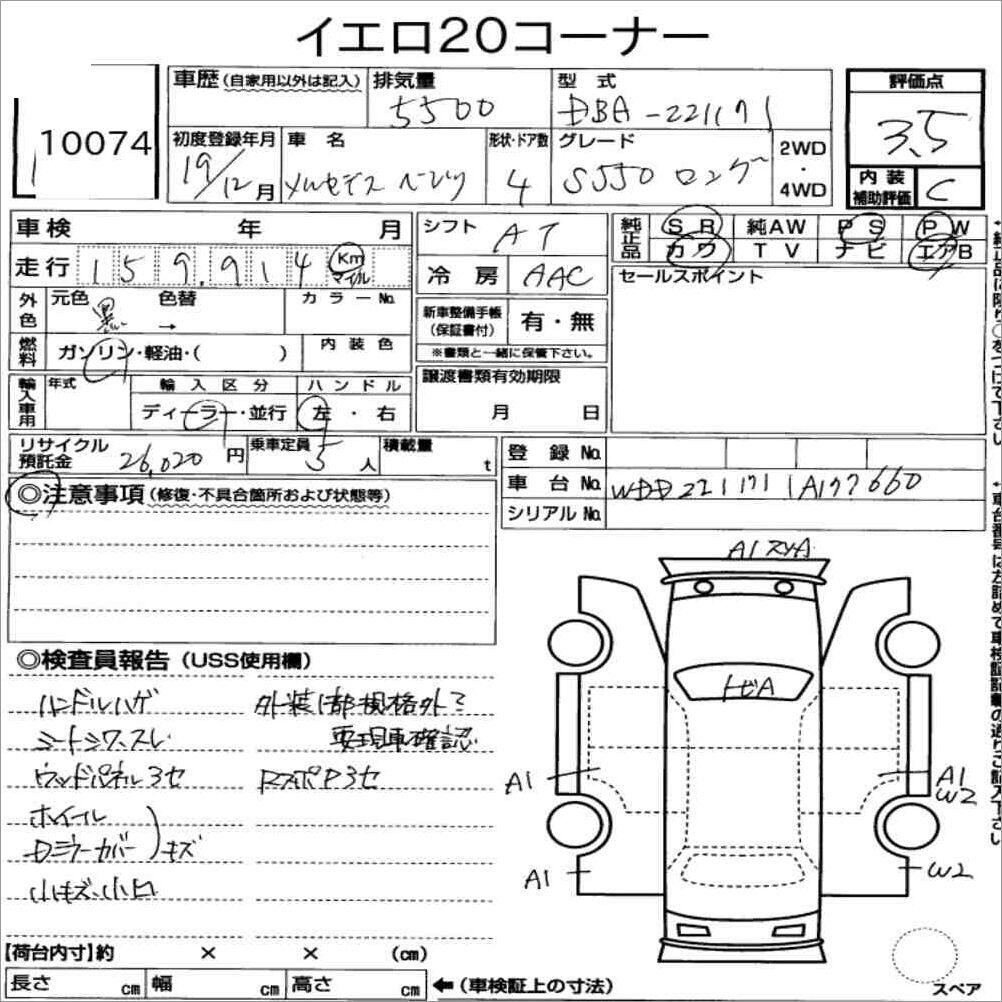 イエロ20コーナー
10074
車歴(自家用以外は記入)
排気量
5500
型 式
DBA-221171
評価点
3.5
初度登録年月
19/12月
車 名
メルセデス ベンツ
形状・ドア数
4
グレード
S550 ロング
2WD
・
4WD
内 装
補助評価
C
車検 年 月
走行 159,914 Km
マイル
シフト
AT
冷 房
AAC
純正品
SR 純AW PS PW
カワ TV ナビ エアB
セールスポイント
外色
元色 黒
色替 →
カラーNo.
新車整備手帳
(保証書付)
有・無
※書類と一緒に保管下さい。
燃料
ガソリン・軽油・( )
内装色
譲渡書類有効期限
月 日
輸入車用
年式
輸入区分
ディーラー・並行
ハンドル
左・右
リサイクル
預託金
26,020円
乗車定員
5人
積載量
t
登録No.
車台No.
WDD221171 1A177660
シリアルNo.
◎注意事項(修復・不具合箇所および状態等)
◎検査員報告(USS使用欄)
ハンドルハゲ
シートシワ、スレ
ウッドパネルヨセ
ホイール
Dミラーカバー)キズ
小キズ、小凹
外装1部規格外で
要現車確認
A1
トビA
A1
A1
W2
A1
W2
スペア
【荷台内寸】約 × × (cm)
長さ cm
幅 cm
高さ cm
←(車検証上の寸法)